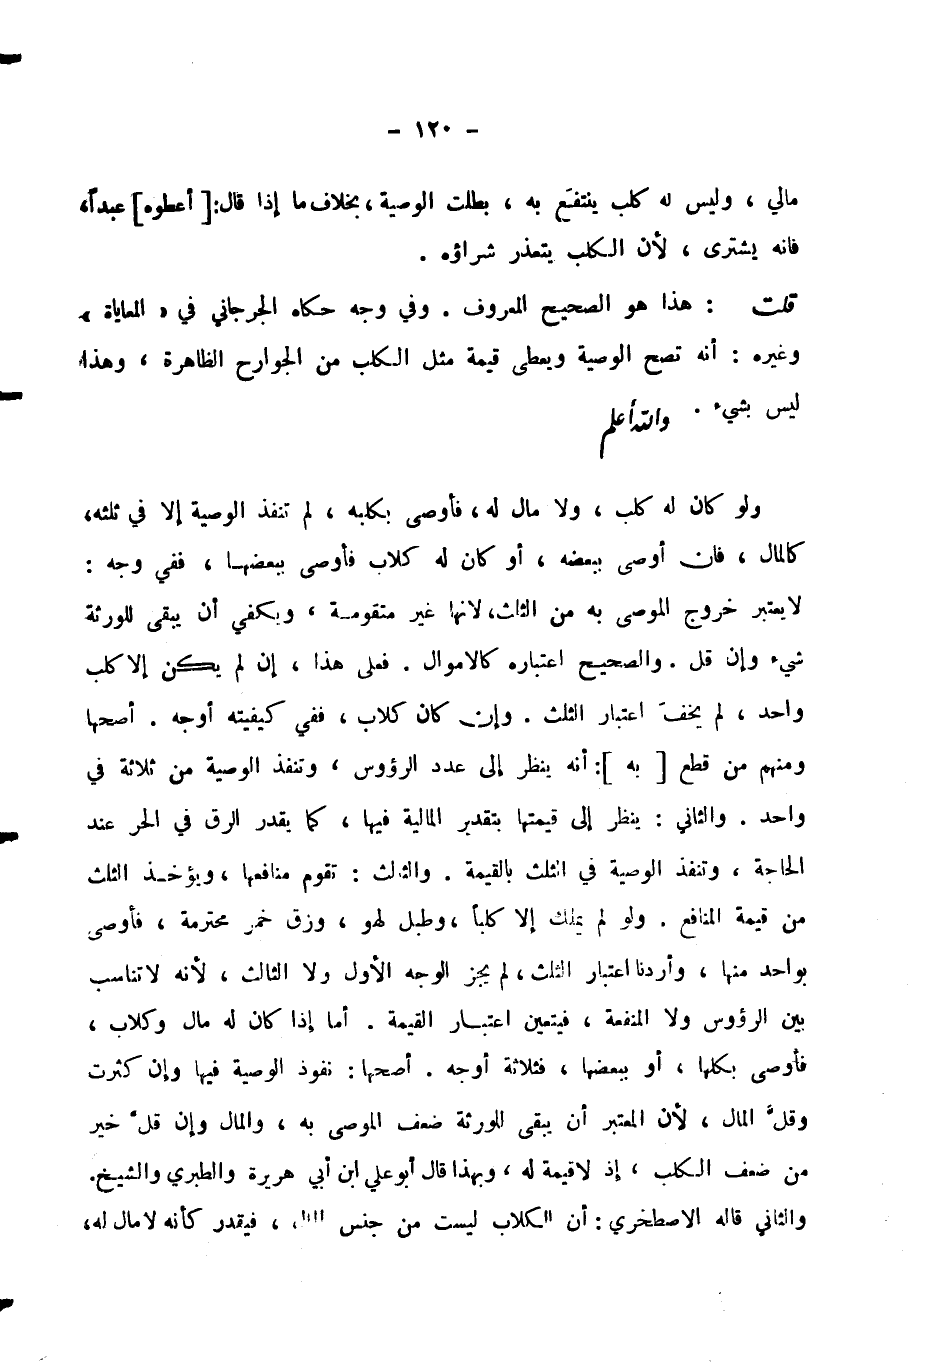 - ١٢٠ -
مالي ، وليس له كلب ينتفَع به ، بطلت الوصية ، بخلاف ما إذا قال : [ أعطوه ] عبداً ،
فانه يشترى ، لأن الكلب يتعذر شراؤه .
قلت : هذا هو الصحيح المعروف . وفي وجه حكاه الجرجاني في « المعاياة »
وغيره : أنه تصح الوصية ويعطى قيمة مثل الكلب من الجوارح الظاهرة ، وهذا
ليس بشيء . والله أعلم
ولو كان له كلب ، ولا مال له ، فأوصى بكلبه ، لم تنفذ الوصية إلا في ثلثه ،
كالمال ، فان أوصى ببعضه ، أو كان له كلاب فأوصى ببعضها ، ففي وجه :
لا يعتبر خروج الموصى به من الثلث ، لانها غير متقومة ، ويكفي أن يبقى للورثة
شيء وإن قل . والصحيح اعتباره كالاموال . فعلى هذا ، إن لم يكن إلا كلب
واحد ، لم يخفَ اعتبار الثلث . وإن كان كلاب ، ففي كيفيته أوجه . أصحها
ومنهم من قطع [ به ] : أنه ينظر إلى عدد الرؤوس ، وتنفذ الوصية من ثلاثة في
واحد . والثاني : ينظر إلى قيمتها بتقدير المالية فيها ، كما يقدر الرق في الحر عند
الحاجة ، وتنفذ الوصية في الثلث بالقيمة . والثالث : تقوم منافعها ، ويؤخذ الثلث
من قيمة المنافع . ولو لم يملك إلا كلباً ، وطبل لهو ، وزق خمر محترمة ، فأوصى
بواحد منها ، وأردنا اعتبار الثلث ، لم يجز الوجه الأول ولا الثالث ، لأنه لا تناسب
بين الرؤوس ولا المنفعة ، فيتعين اعتبار القيمة . أما إذا كان له مال وكلاب ،
فأوصى بكلها ، أو ببعضها ، فثلاثة أوجه . أصحها : نفوذ الوصية فيها وإن كثرت
وقلَّ المال ، لأن المعتبر أن يبقى للورثة ضعف الموصى به ، والمال وإن قلَّ خير
من ضعف الكلب ، إذ لا قيمة له ، وبهذا قال أبو علي ابن أبي هريرة والطبري والشيخ .
والثاني قاله الاصطخري : أن الكلاب ليست من جنس ، فيقدر كأنه لا مال له ،